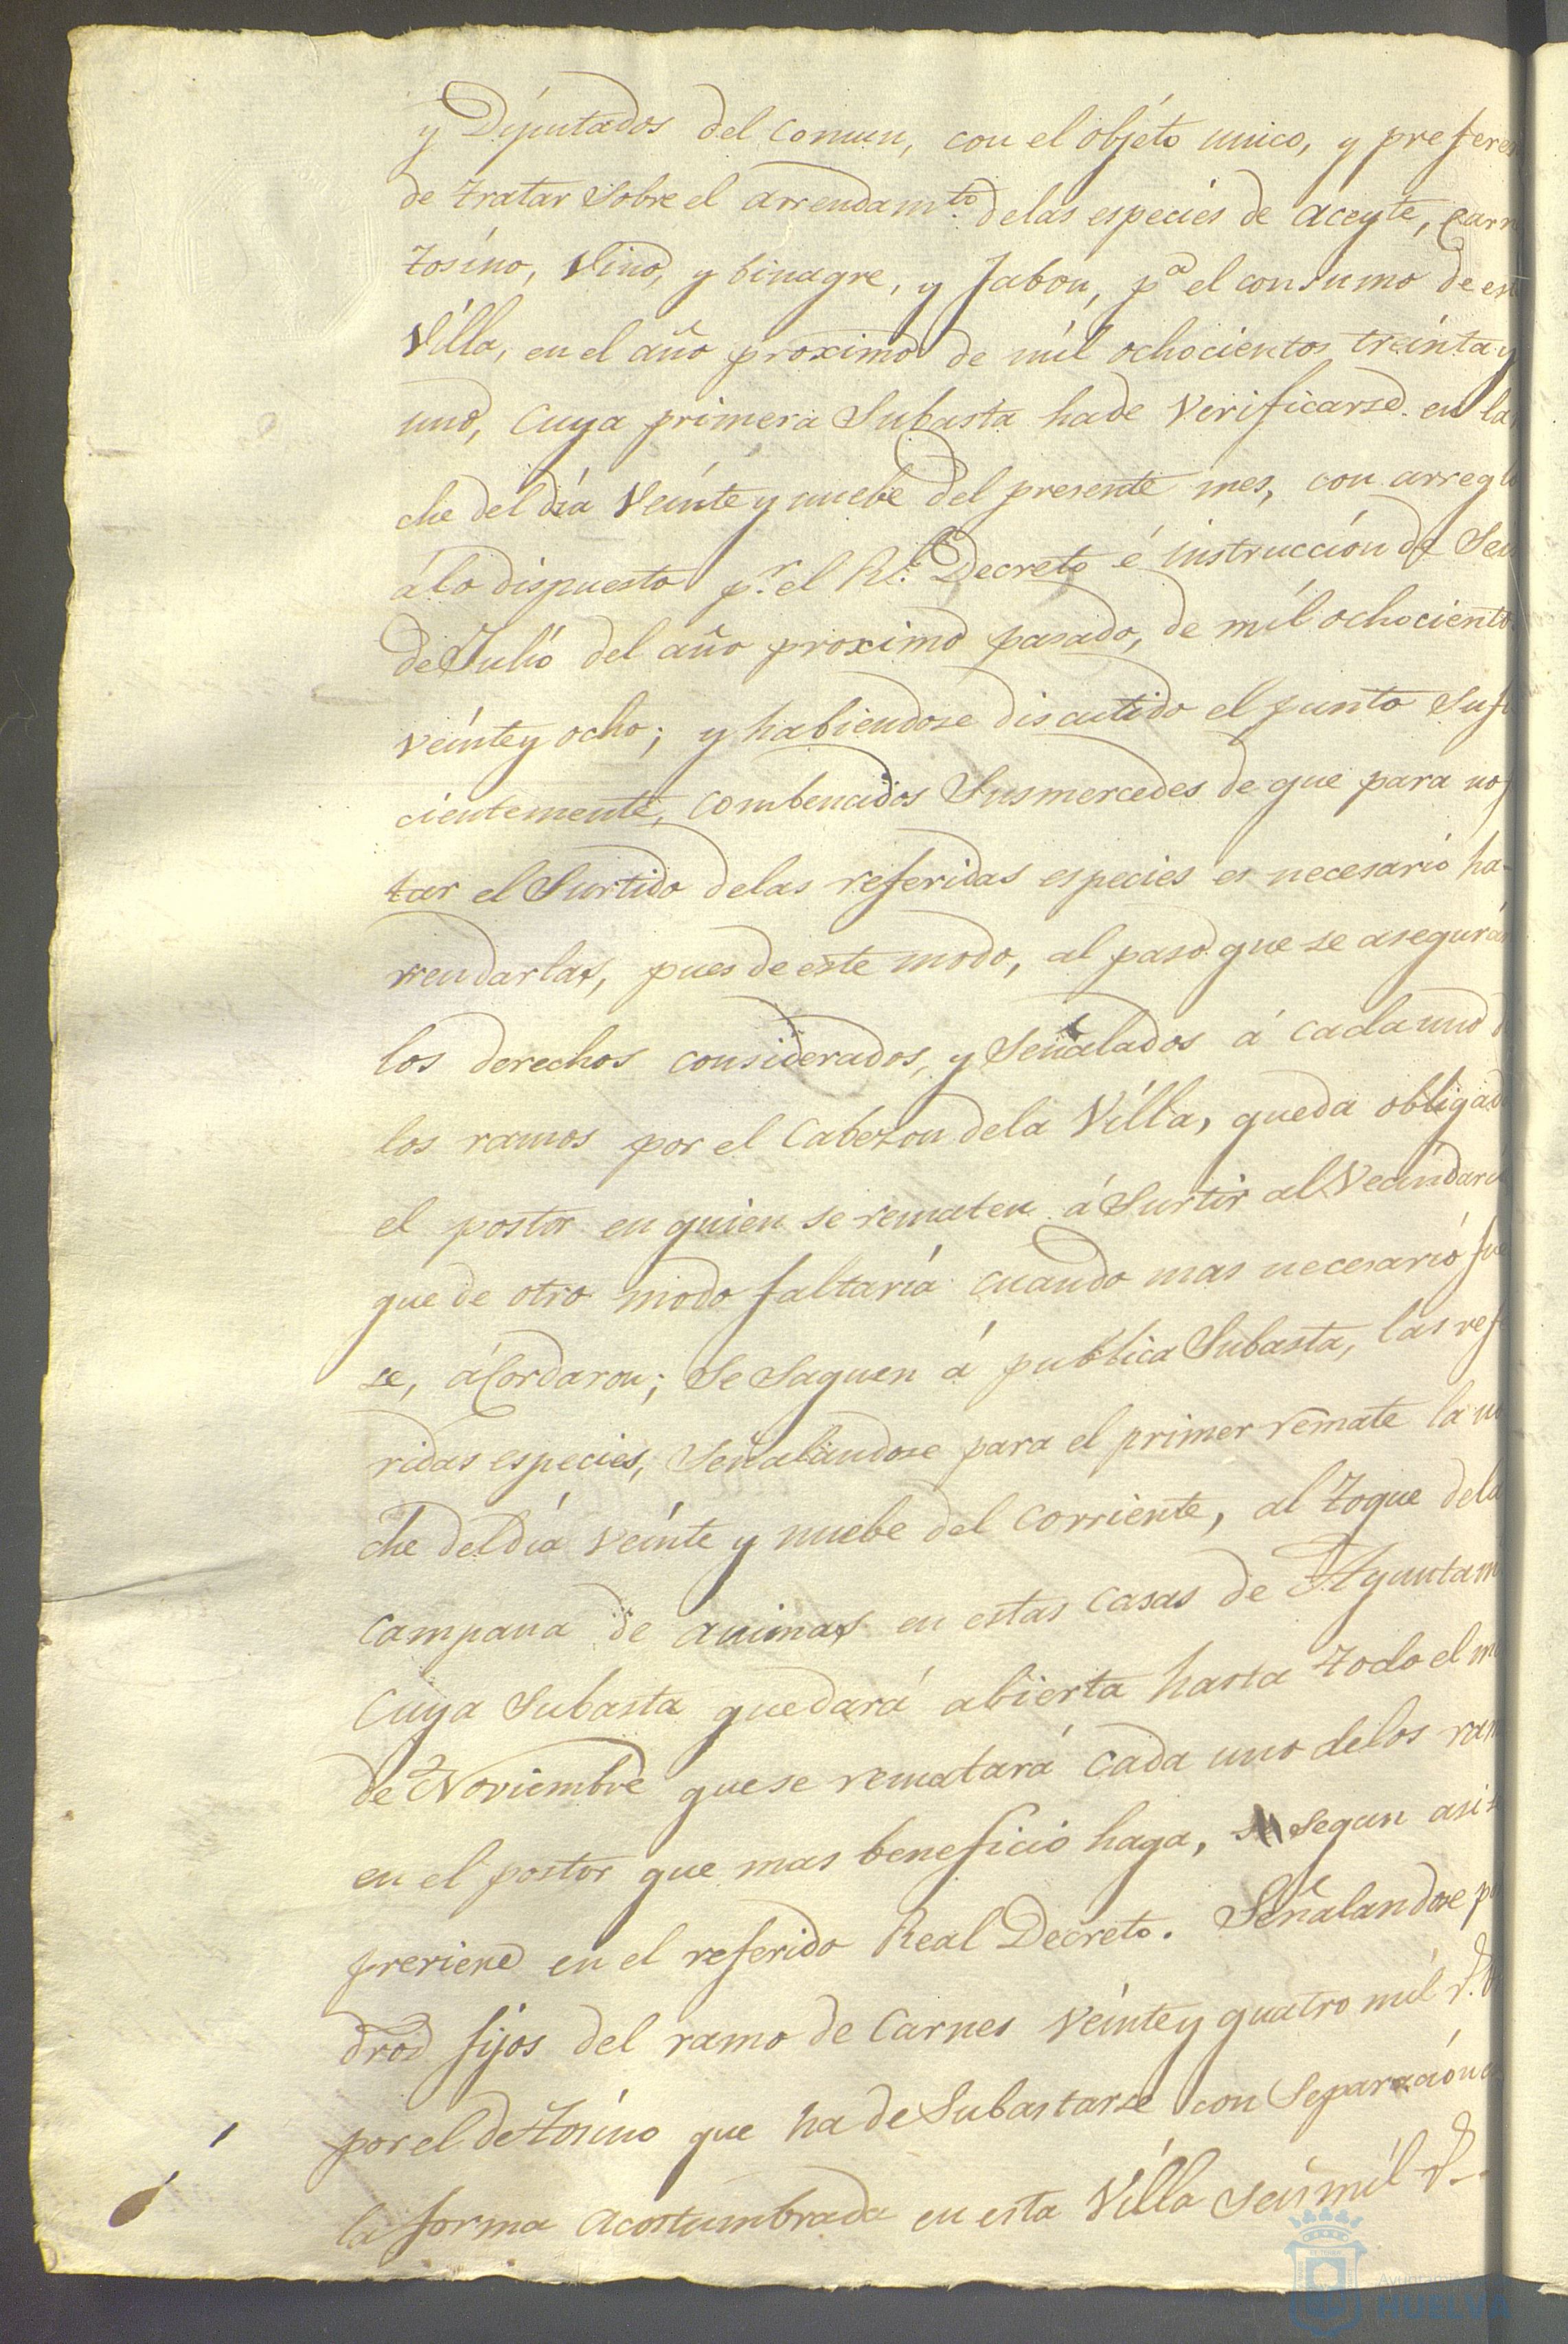 y Diputados del Comun, con el objeto unico, y prefere
de tratar sobre el arrendamto. delas especies de aceyte, Carn
tosino, Vino, y binagre, y Jabon, pa el consumo de est
Villa, en el año proximo de mil ochocientos treinta y
uno, Cuya primera Subasta hade Verificarse en la
che del dia Veinte y nuebe del presente mes, con arreglo
álo dispuesto pr. el Rl. Decreto é instrucción de Seis
de Julio del año proximo pasado, de mil ochociento
veinte y ocho; y habiendose discutido el punto Sufi
cientemente, Combencidos Susmercedes de que para no f
tar el Surtido delas referidas especies es necesario ha-
rrendarlas, pues de este modo, al paso que se asegurá
los derechos considerados, y Señalados á cada uno d
los ramos por el Cabezon dela Villa, queda obligad
el postor en quien se rematen á Surtir al Vecindari
que de otro modo faltaría cuando mas necesario fue
se, áCordaron; Se Saquen á publica Subasta, las refe
ridas especies, Señalandose para el primer remate la no
che del dia veinte y nuebe del Corriente, al toque dela
Campana de animas en estas Casas de Ayuntam
Cuya Subasta quedará abierta hasta todo el m
de Noviembre que se rematará Cada uno delos ram
en el postor que mas beneficio haga, segun asi s
previene en el referido Real Decreto. Señalandose p
dros fijos del ramo de Carnes Veinte y quatro mil r.
por el de tosino que ha de Subastarse con Separación
la forma acostumbrada en esta Villa Seis mil r.
Ayuntam
HUELVA